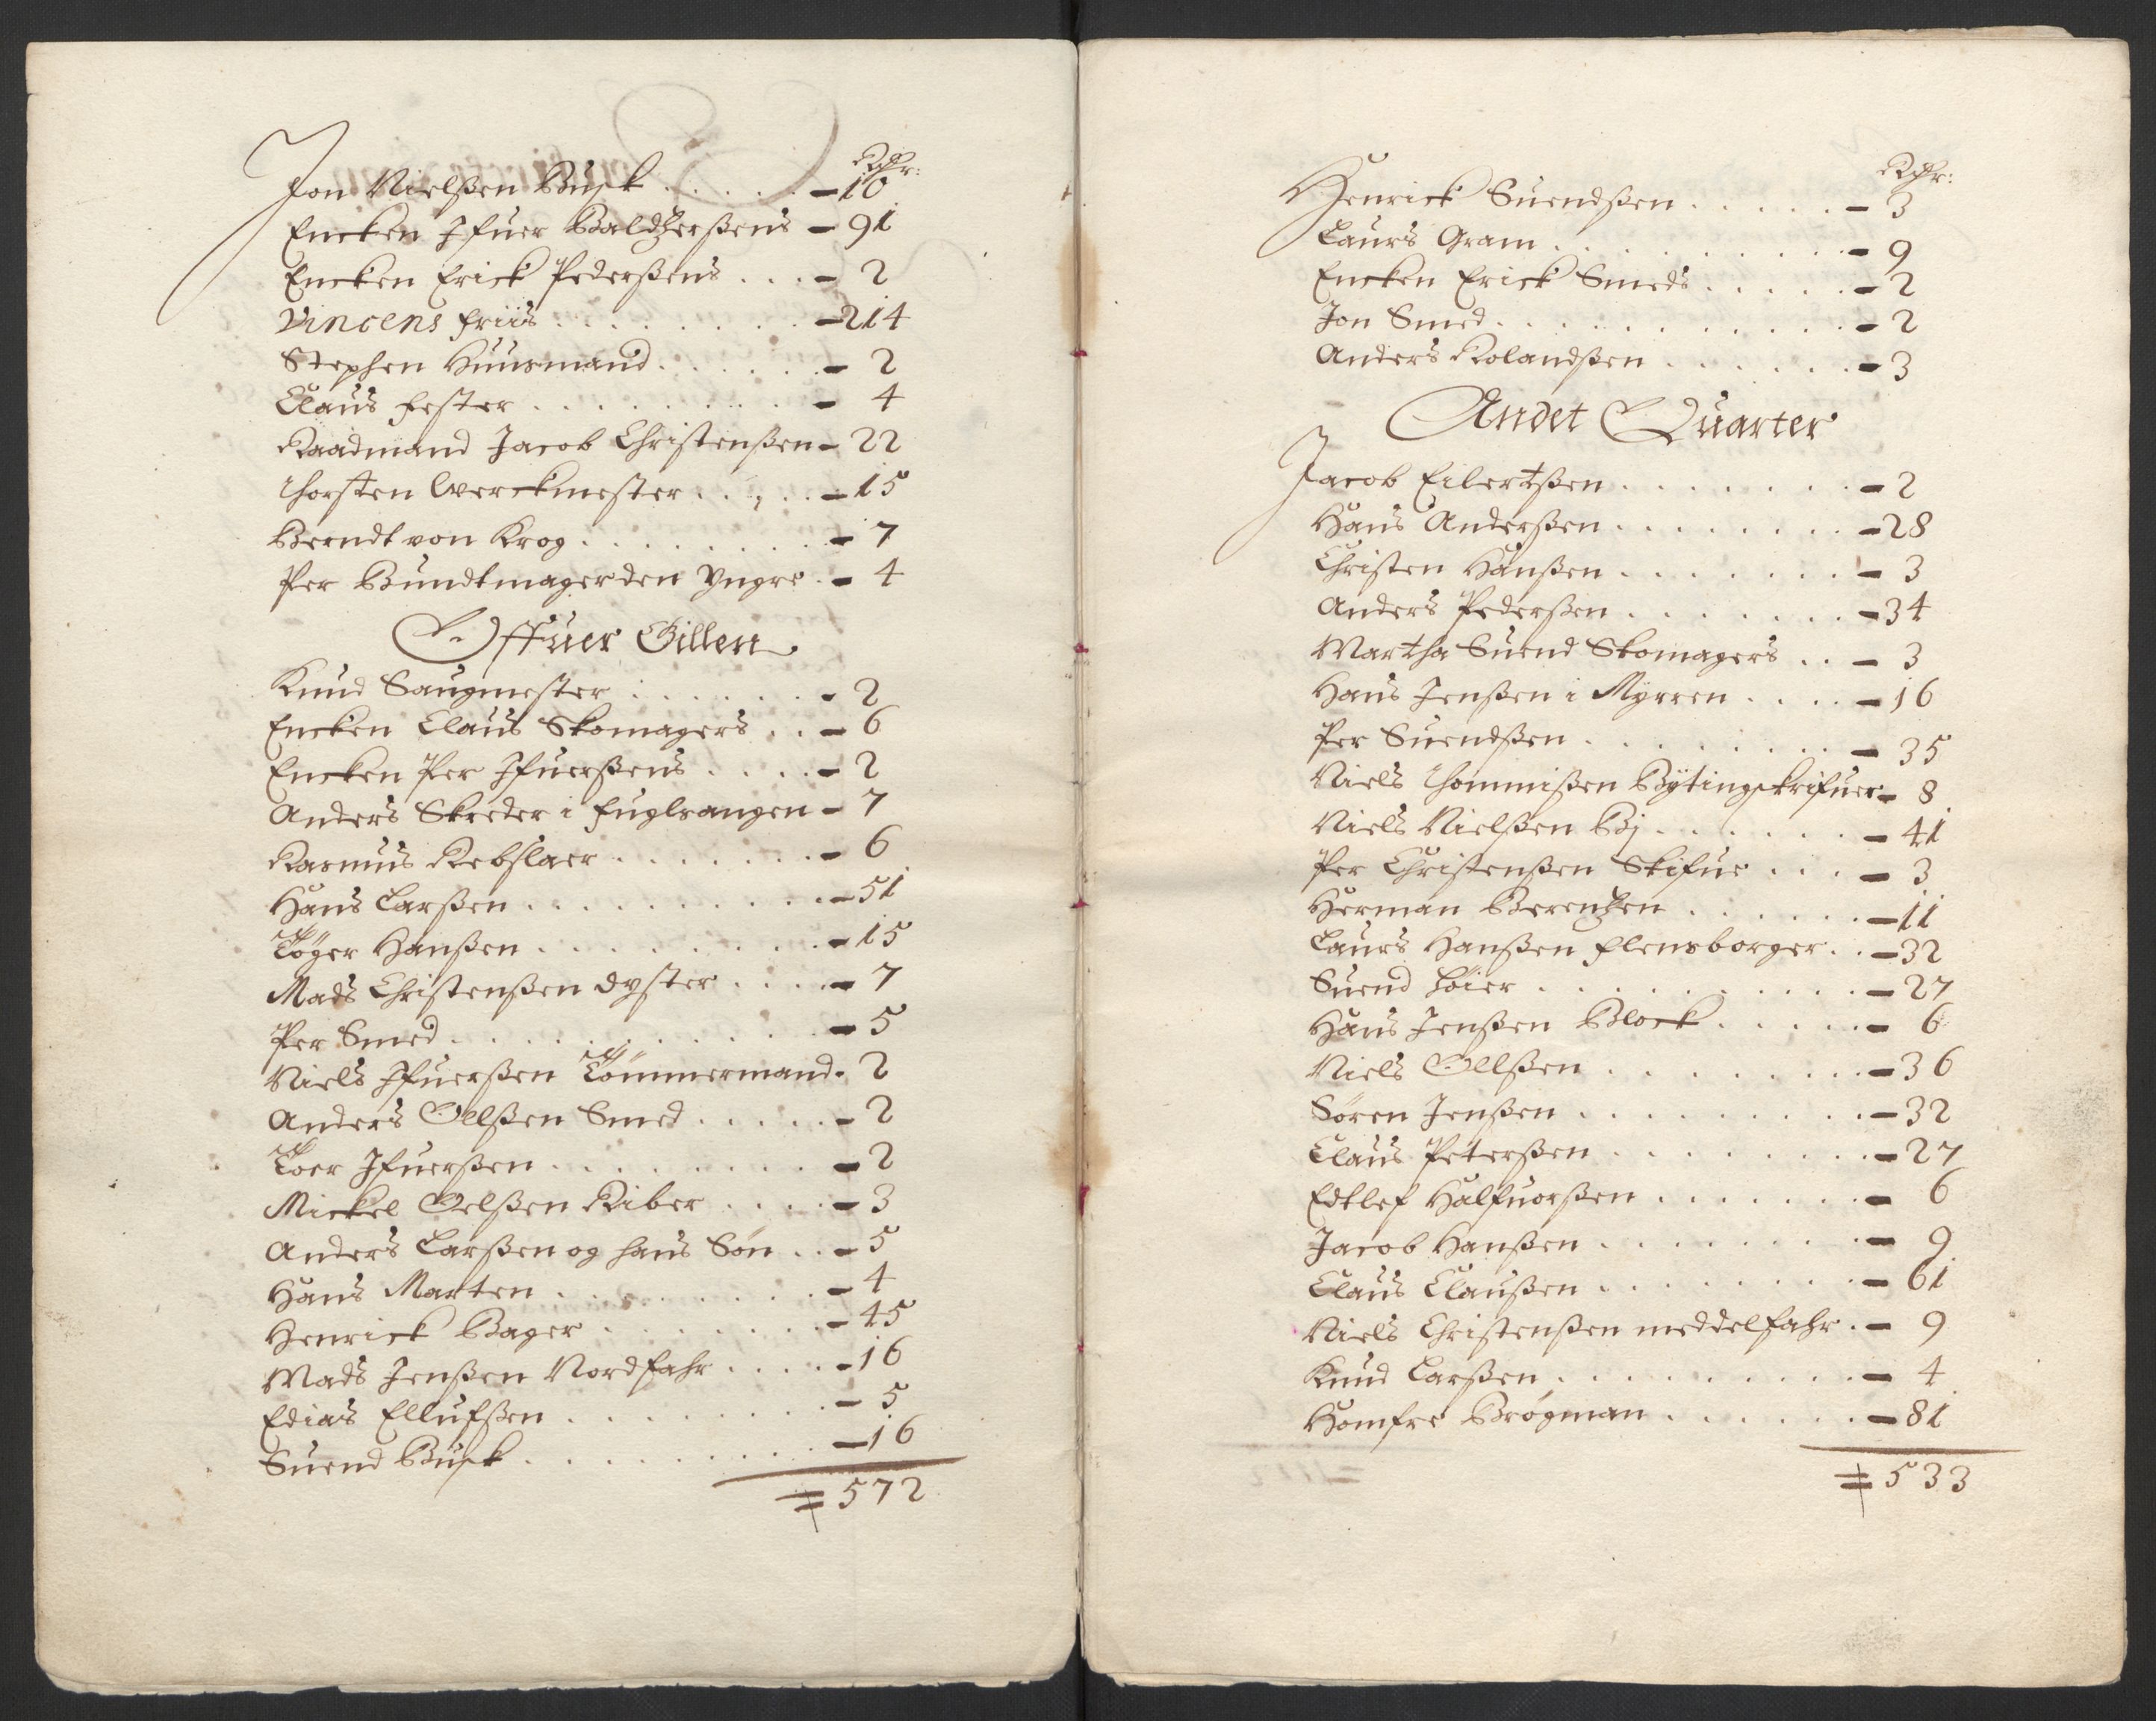 Rdr:
Jon Nielßen Busk . . . . . - 10
Encken Ifuer Baldtzerßens - 91
Encken Erick Pederßens . . . - 2
Vincens Friis . . . . . . . . - 214
Stephen Huusmand . . . . . . - 2
Claus Fester . . . . . . . . . - 4
Raadmand Jacob Christenßen - 22
Thorsten Werckmester . . . . - 15
Berndt von Krog . . . . . . . . - 7
Per Bundtmager den Yngre . - 4
Offuer Gillen
Knud Saugmester . . . . . . . - 2
Encken Claus Skomagers . . - 6
Encken Per Ifuerßens . . . . - 2
Anders Skreder i Fuglsangen - 7
Rasmus Rebslaer . . . . . . . - 6
Hans Larßen . . . . . . . . . . - 51
Tøger Hanßen . . . . . . . . . - 15
Mads Christenßen dyster . . . . - 7
Per Smed . . . . . . . . . . . - 5
Niels Ifuerßen Tömmermand - 2
Anders Ollßen Smed . . . . . - 2
Toer Ifuerßen . . . . . . . . - 2
Mickel Oelßen Riber . . . . - 3
Anders Larßen og hans Søn . . - 5
Hans Marten . . . . . . . . . - 4
Henrick Bager . . . . . . . . - 45
Mads Jenßen Nordfahr . . . . - 16
Edias Ellufßen . . . . . . . . - 5
Suend Busk . . . . . . . . . - 16
= 572
Rdr:
Henrick Suendßen . . . . . - 3
Laurs Gram . . . . . . . . . . - 9
Encken Erick Smeds . . . . . - 2
Jon Smed . . . . . . . . . . . . - 2
Anders Rolandßen . . . . . . - 3
Andet Quarter
Jacob Eilertßen . . . . . . . - 2
Hans Anderßen . . . . . . . . - 28
Christen Hanßen . . . . . . . - 3
Anders Pederßen . . . . . . . - 34
Martha Suend Skomagers . . - 3
Hans Jenßen i Myrren . . . . - 16
Per Suendßen . . . . . . . . . - 35
Niels Thommißen Bytingskrifuer - 8
Niels Nielßen Bj . . . . . . . - 41
Per Christenßen Skifue . . . - 3
Herman Berentzen . . . . . . - 11
Laurs Hanßen Flensborger . . - 32
Suend Löier . . . . . . . . . . - 27
Hans Jenßen Block . . . . . - 6
Niels Ollßen . . . . . . . . - 36
Sören Jenßen . . . . . . . . . - 32
Claus Peterßen . . . . . . . . . - 27
Edtlef Halfuorßen . . . . . . . - 6
Jacob Hanßen . . . . . . . . - 9
Claus Claußen . . . . . . . . - 61
Niels Christenßen meddelfahr . - 9
Knud Larßen . . . . . . . . . . - 4
Homfre Brøgman . . . . . . - 81
= 533